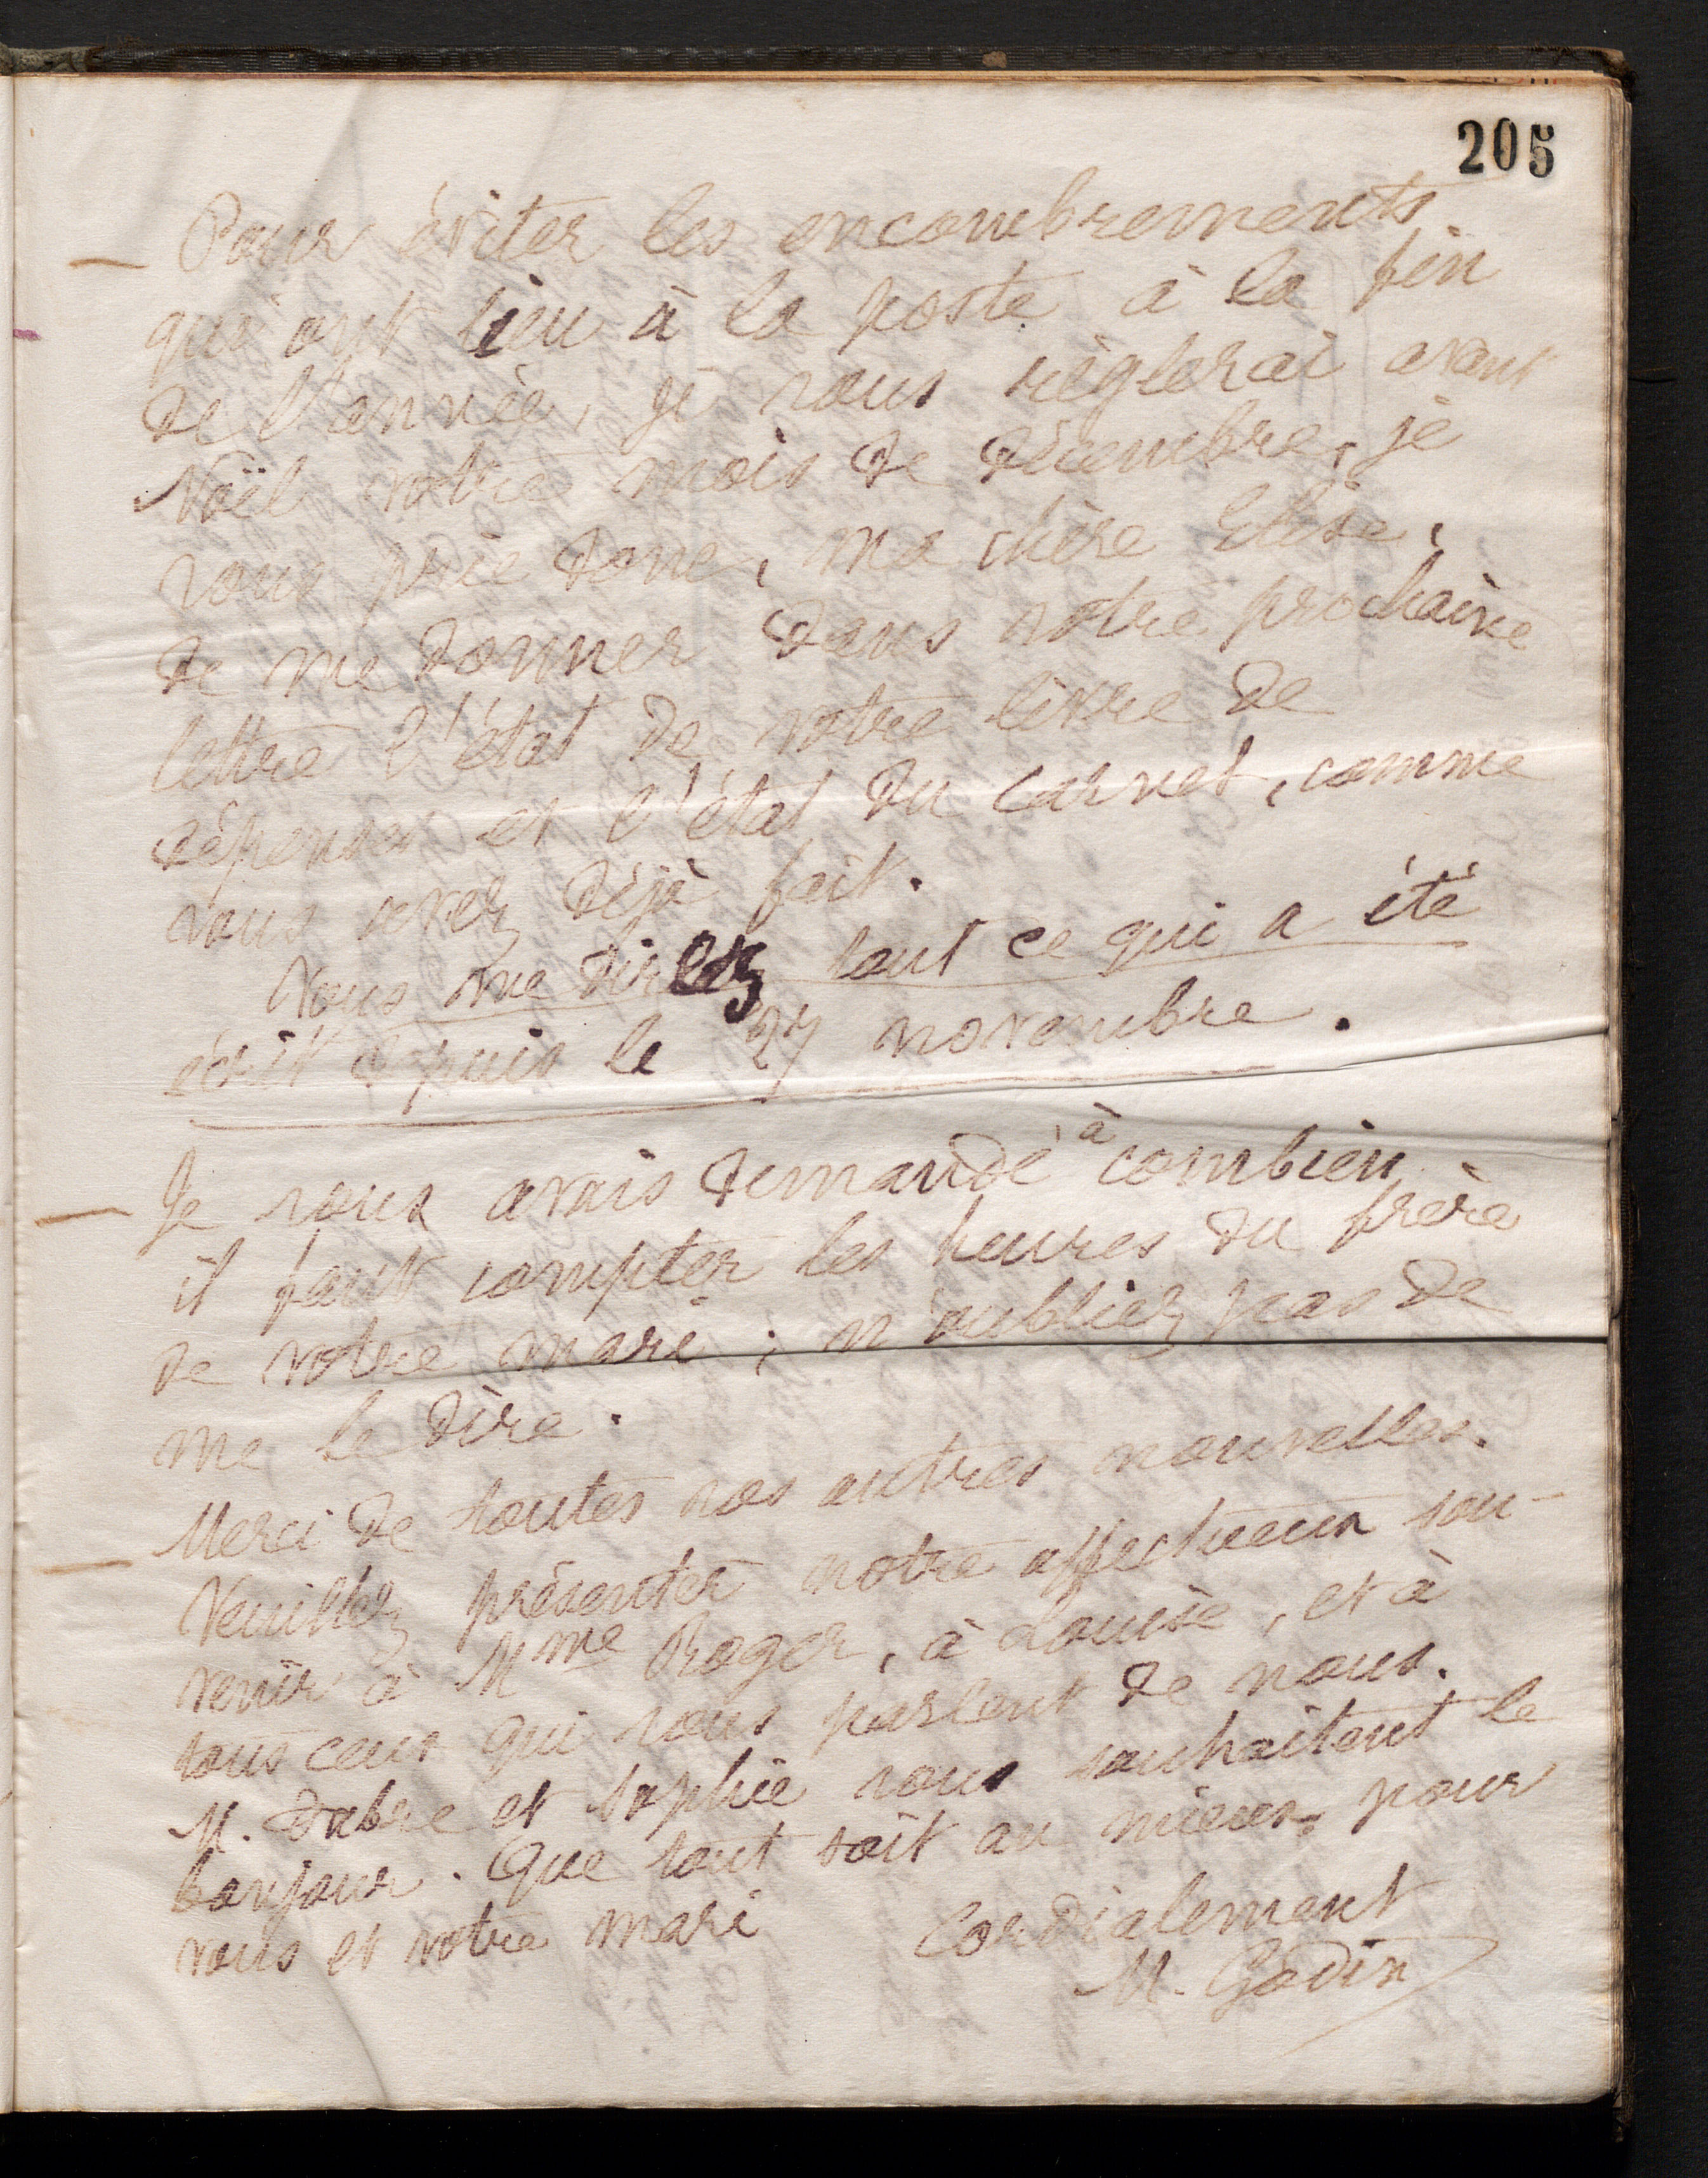 205
— Pour éviter les encombrements
qui ont lieu à la poste à la fin
de l'année, je vous règlerai avant
Noël votre mois de décembre, je
vous prie donc, ma chère Elise,
de me donner dans votre prochaine
lettre l'état de votre livre de
dépenses et l'état du carnet, comme
vous avez déjà fait.
Vous me direz tout ce qui a été
écrit depuis le 27 novembre.
— Je vous avais demandé à combien
il faut compter les heures du frère
de votre mari ; n'oubliez pas de
me le dire.
Merci de toutes vos autres nouvelles.
— Veuillez présenter notre affectueux sou-
venir à Mme Roger, à Louise, et à
tous ceux qui vous parlent de nous.
M. Dubre et Sophie vous souhaitent le
bonjour. Que tout soit au mieux pour
vous et votre mari
Cordialement
M. Godin